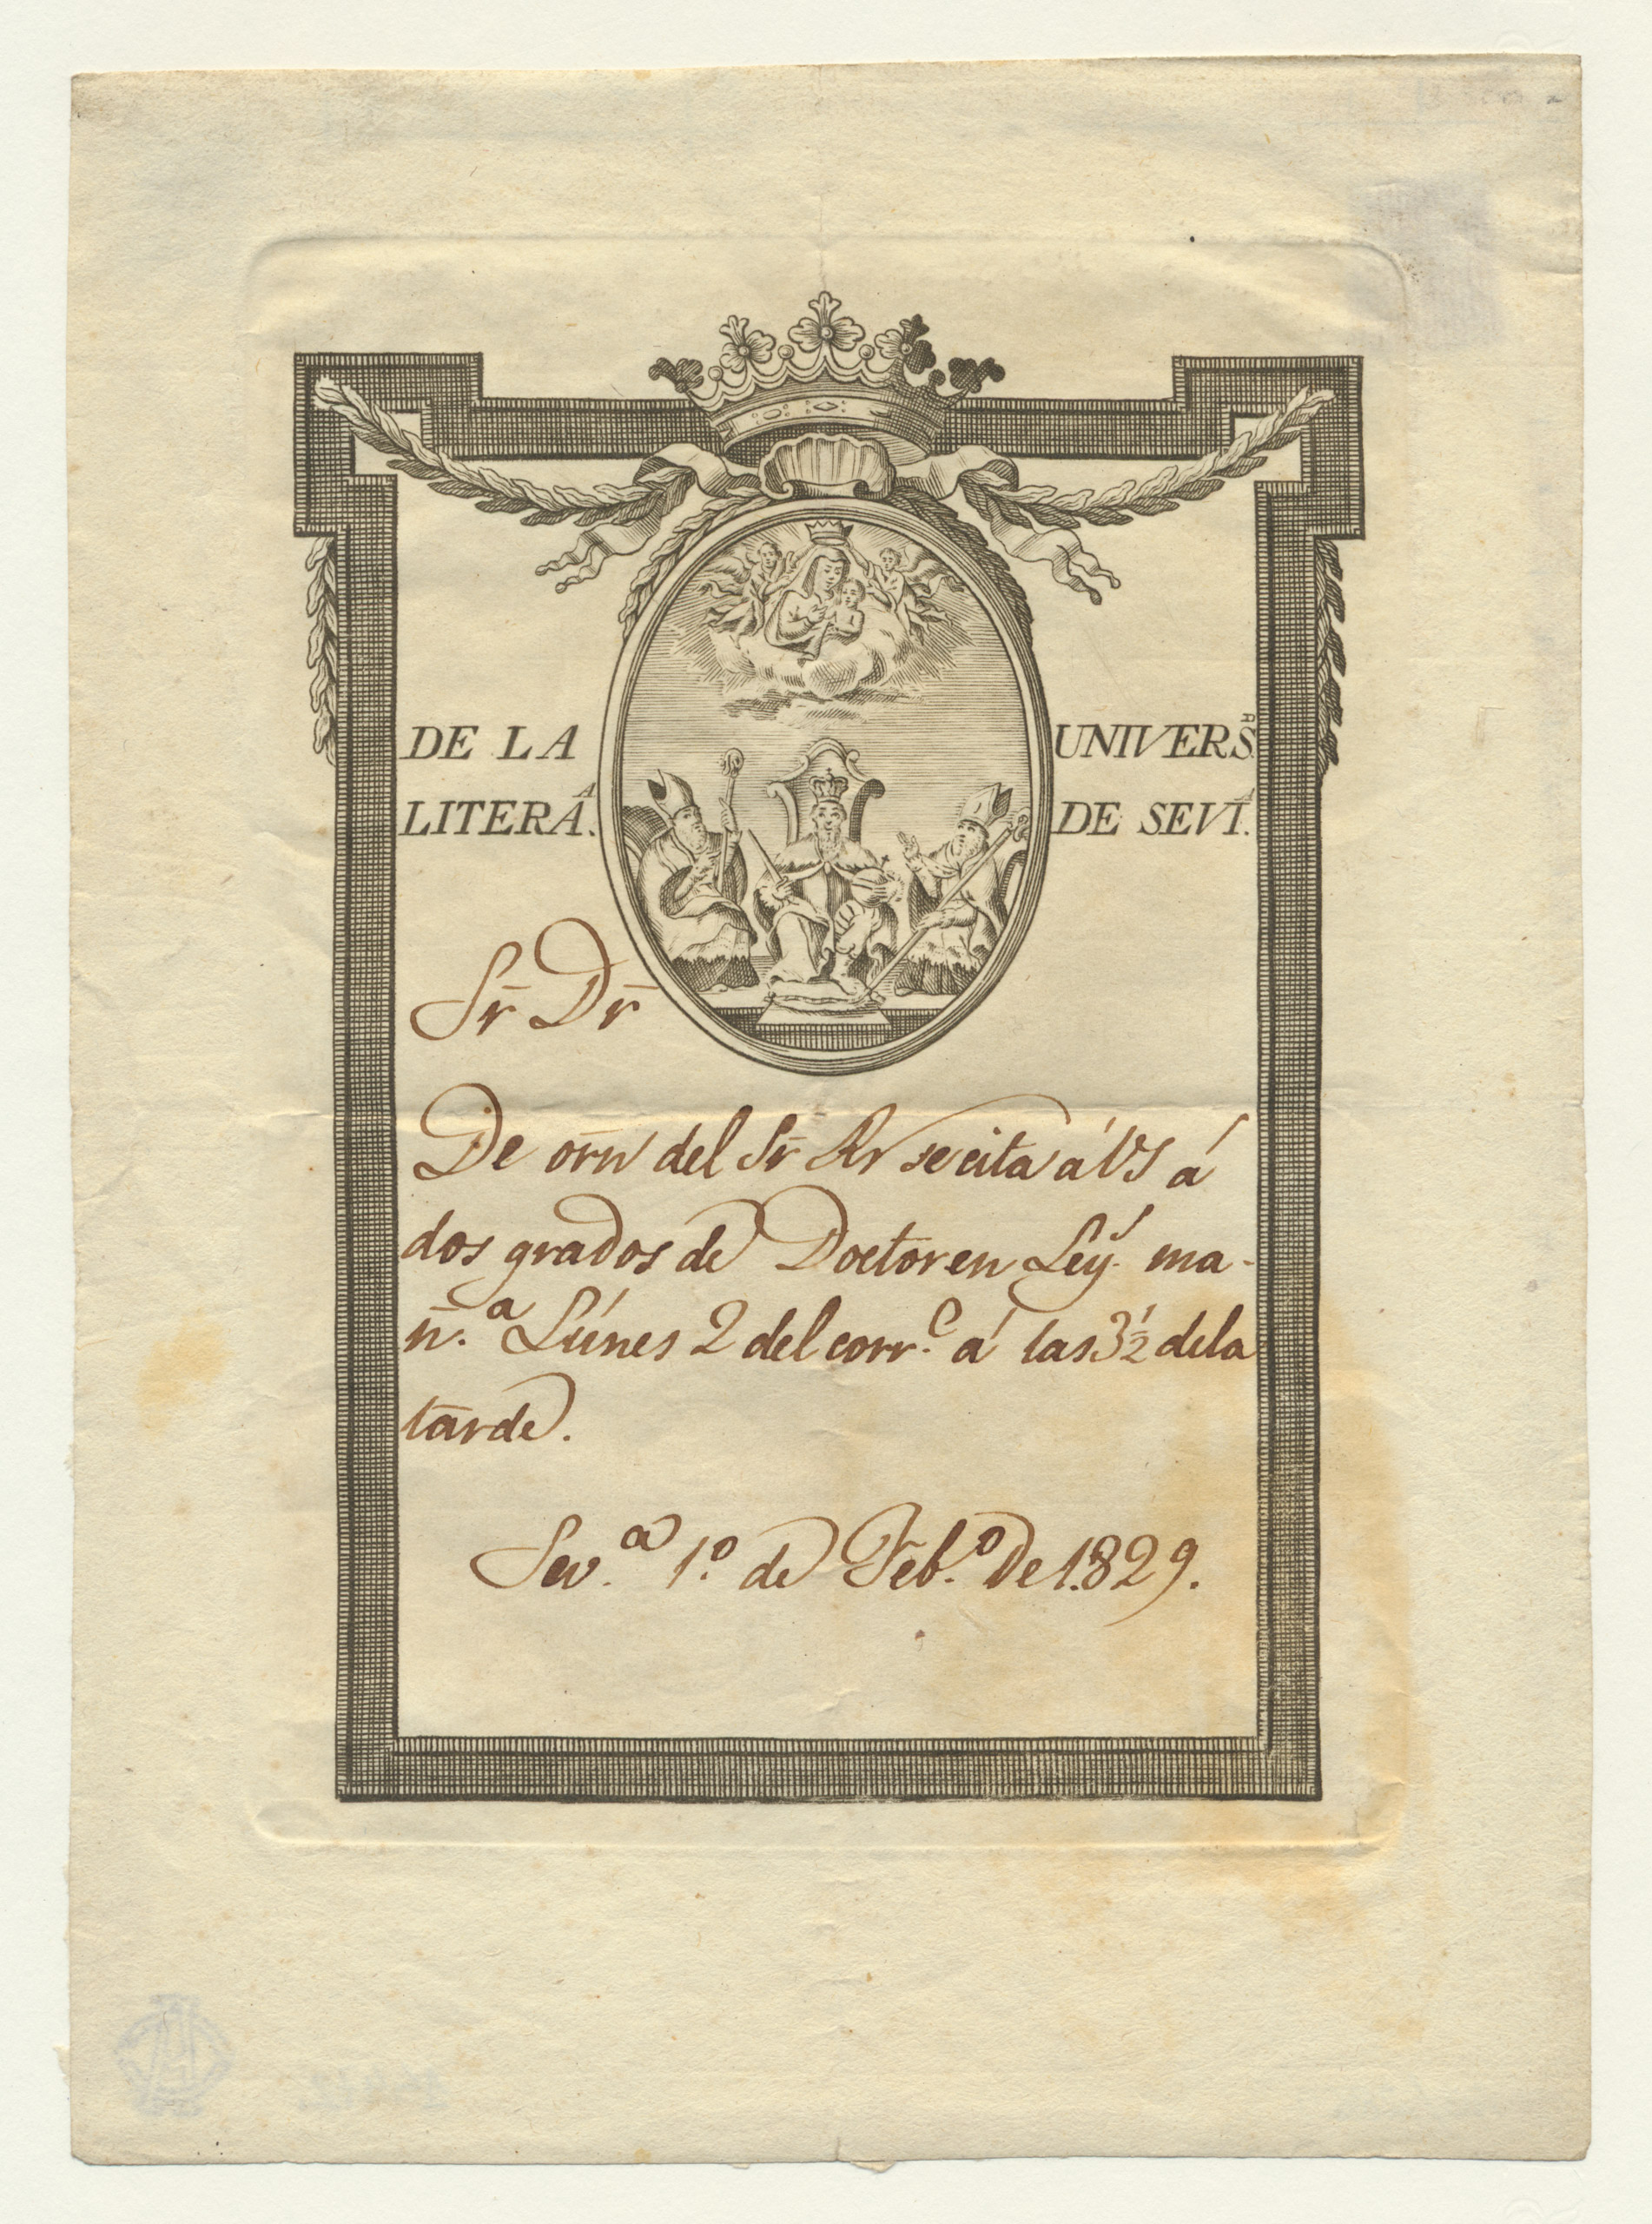 DE LA UNIVERS.ᴿ
LITERA.ᴬ DE SEVI.ᴬ
Sr̄ Dr̄
De orn̄ del Sr̄ Rr̄ se cita á VS á
dos grados de Doctor en Ley.ˢ ma-
ñ.ª Lúnes 2 del corr.ᵉ á las 3½ de la
tarde.
Sev.ª 1.º de Feb.º de 1829.